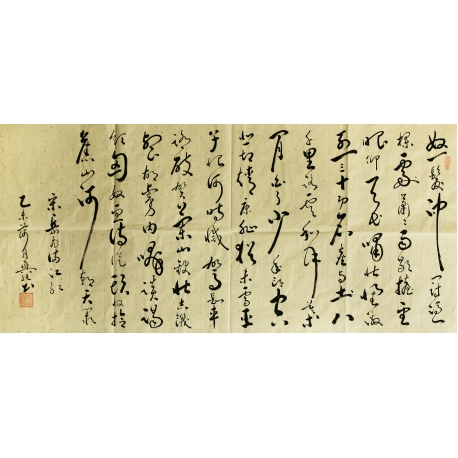 怒髮冲冠憑
欄處瀟瀟雨歇抬望
眼仰天長嘯壯懷激
烈三十功名塵與土八
千里路雲和月莫等
閒白了少年頭空
悲切靖康恥猶未雪臣
子恨何時滅駕長車
踏破賀蘭山缺壯志饑
餐胡虜肉笑談渴
飲匈奴血待從頭收拾
舊山河朝天闕
宋岳飛滿江紅
乙未荷月书